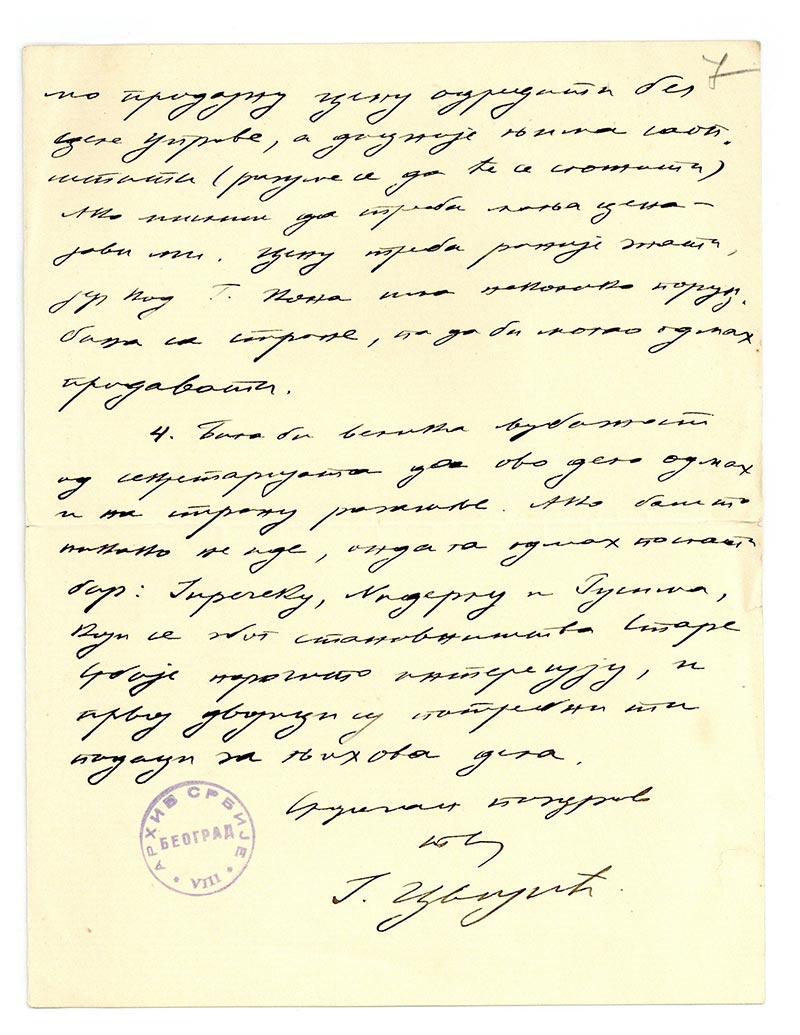 7
мо продајну цену одредити без
целе управе, а доцније њима саоп-
штити (разуме се да ће се сложити)
Ако мислиш да треба мања цена –
јави ми. Цену треба раније знати,
јер код Г. Кона има неколико поруџ-
бина са стране, па да би могао одмах
продавати.
4. Била би велика љубазност
од секретаријата да ово дело одмах
и на страну разашље. Ако баш то
никако не иде, онда га одмах послати
бар: Јиречеку, Нидерлу и
који се због становништва Старе
Србије нарочито интересују, и
првој двојици су потребни ти
подаци за њихова дела.
Срдачан поздрав
твој
Ј. Цвијић.
АРХИВ СРБИЈЕ
БЕОГРАД
VIII